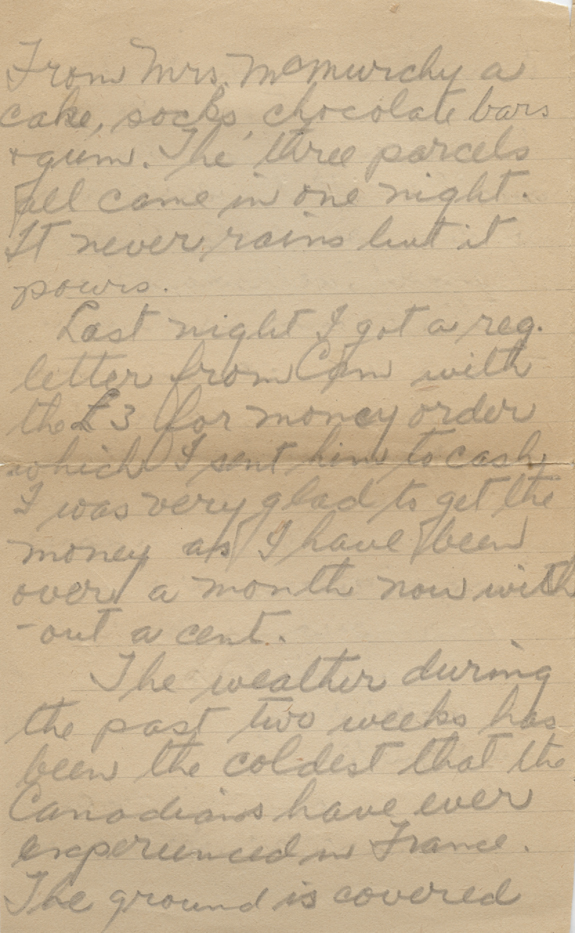 From Mrs. McMurchy a
cake, socks, chocolate bars
+ gum. The three parcels
all came in one night.
It never rains but it
pours.
Last night I got a reg.
letter from Cam with
the £3 for money order
which I sent him to cash.
I was very glad to get the
money as I have been
over a month now with
-out a cent.
The weather during
the past two weeks has
been the coldest that the
Canadians have ever
experienced in France.
The ground is covered